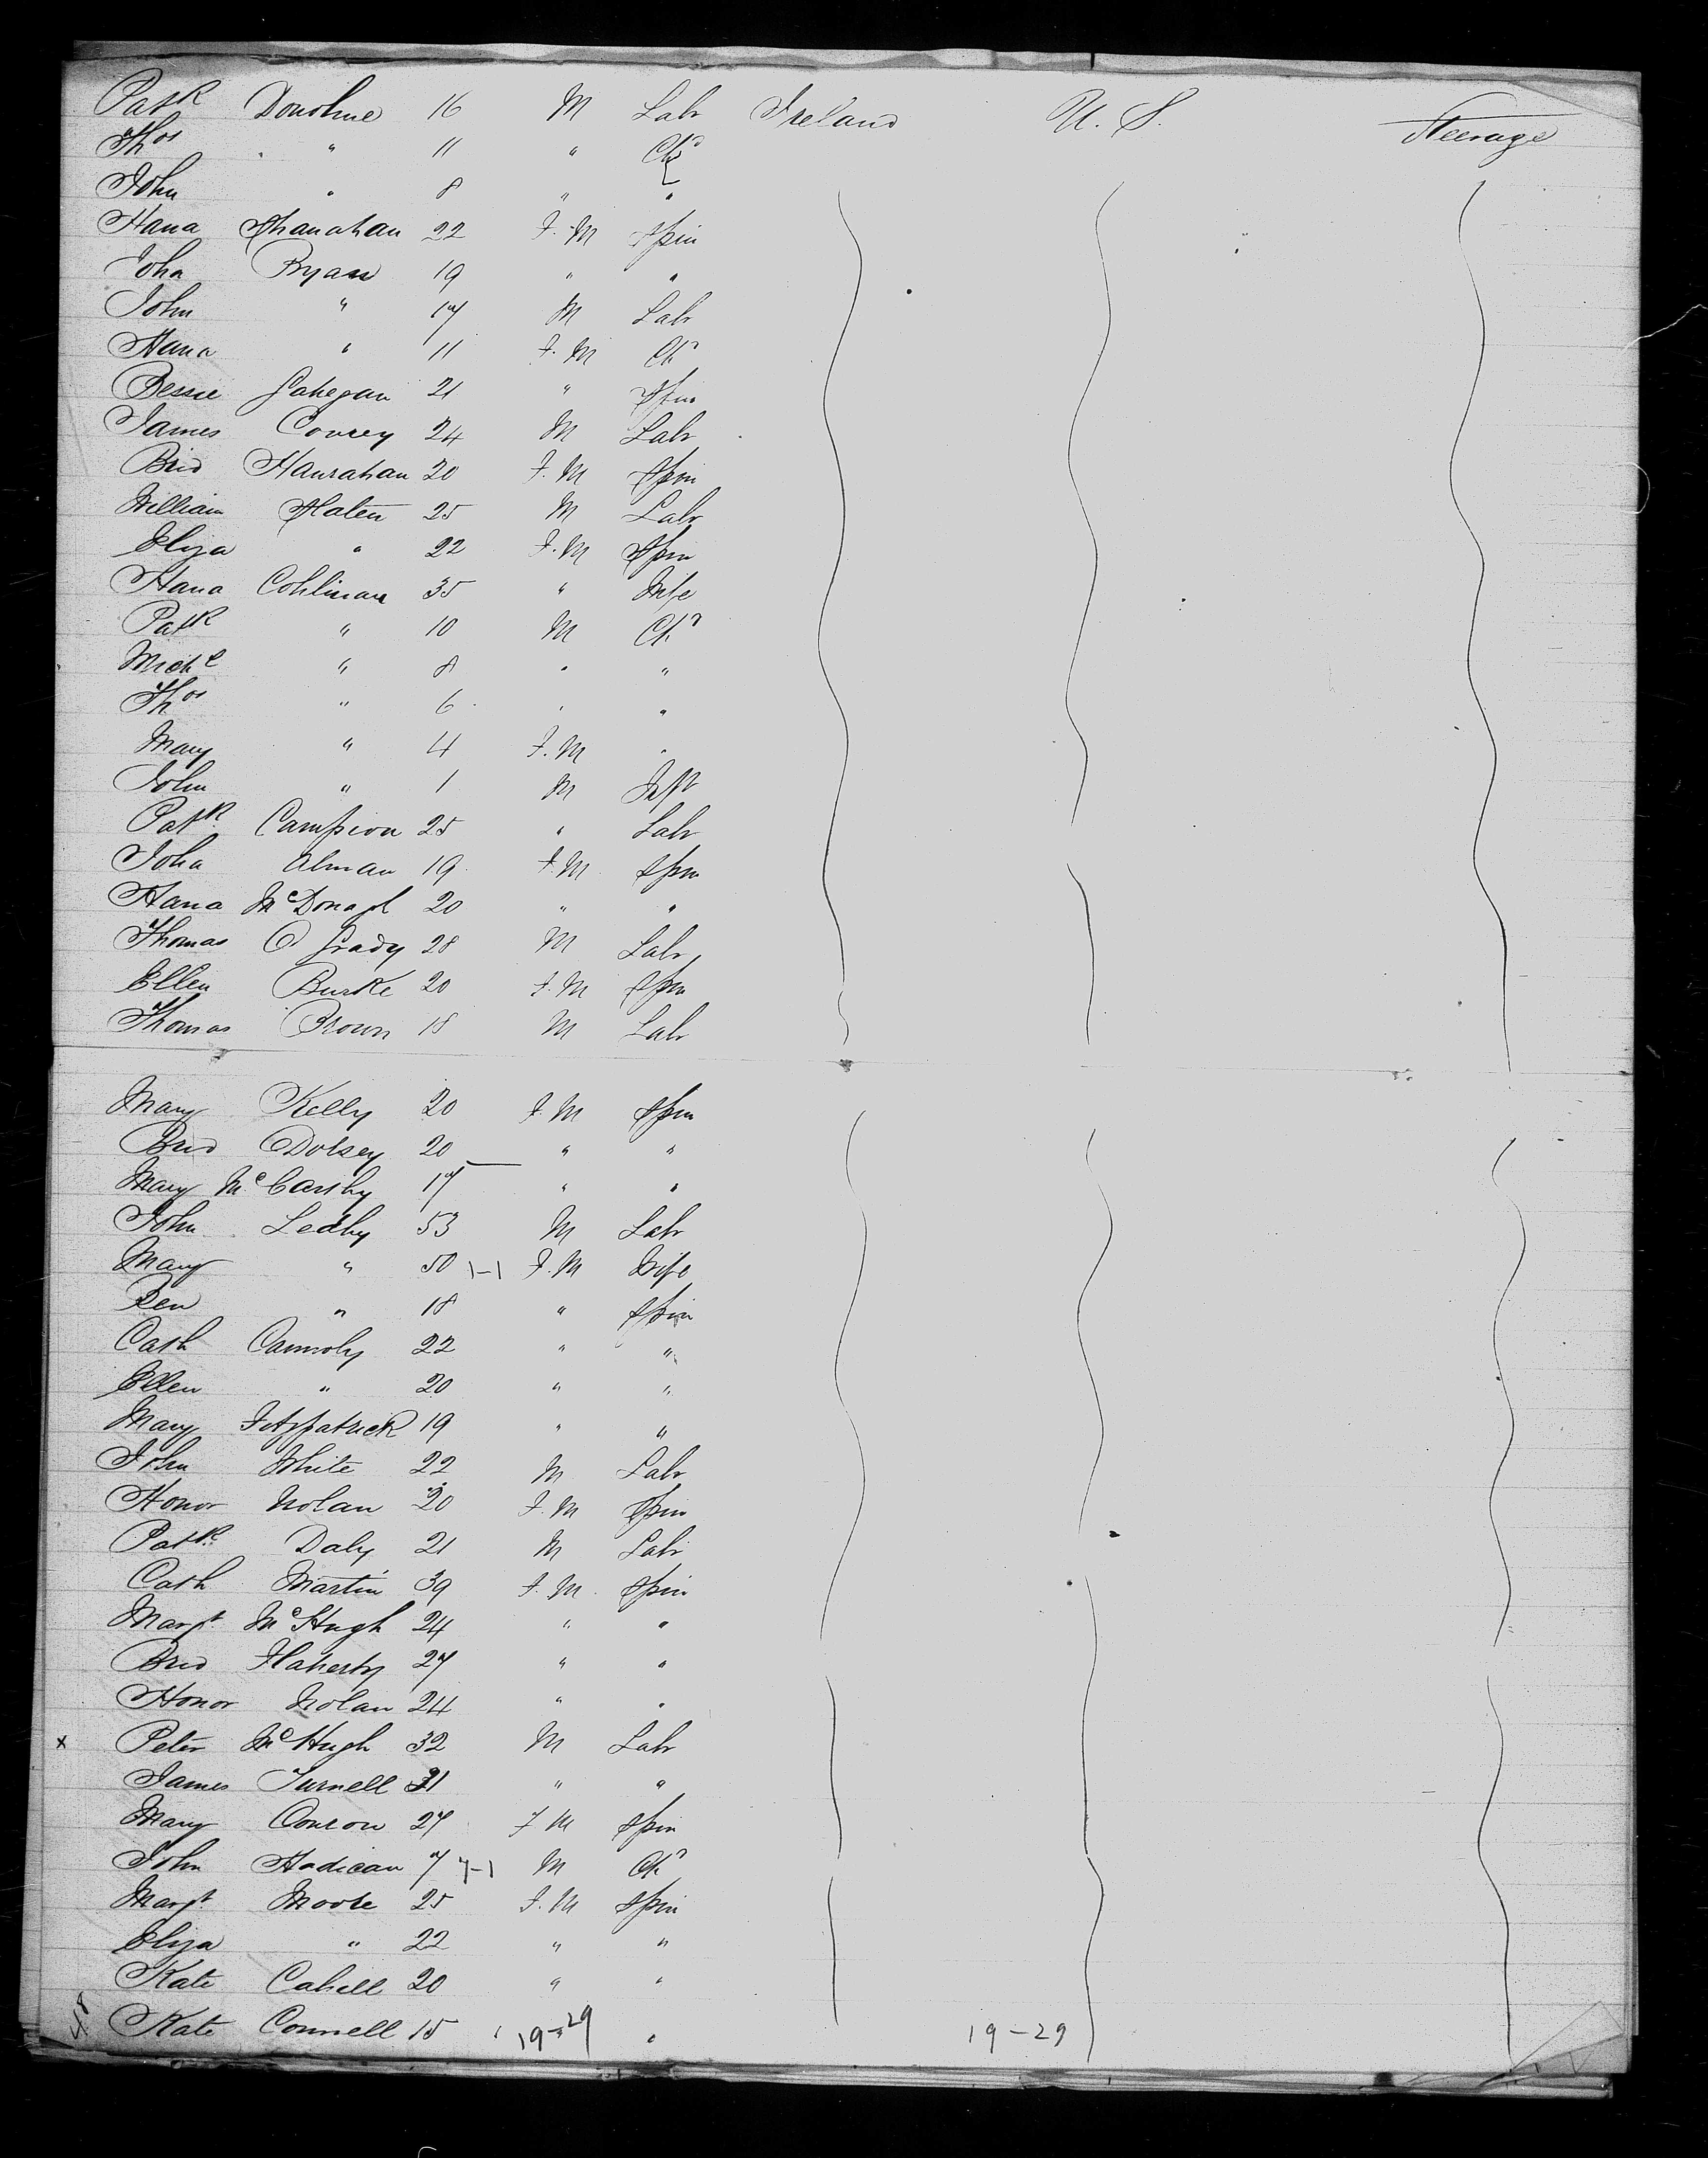 Patk Donohue 16 M Labr Ireland U. S. Steerage
Thos " 11 " Chd
John " 8 " "
Hana Shanahan 22 F.M Spin
Joha Ryan 19 " "
John " 17 M Labr
Hana " 11 F.M Chd
Bessie Gahegan 21 " Spin
James Conrey 24 M Labr
Brid Hanrahan 20 F.M Spin
William Slaten 25 M Labr
Eliza " 22 F.M Spin
Hana Cohlinan 35 " Wife
Patk " 10 M Chd
Michl " 8 " "
Thos " 6 " "
Mary " 4 F.M "
John " 1 M Inft
Patk Campion 25 " Labr
Joha Alman 19 F.M Spin
Hana McDonagh 20 " "
Thomas O Grady 28 M Labr
Ellen Burke 20 F.M Spin
Thomas Brown 18 M Labr
Mary Kelly 20 F.M Spin
Brid Dolsey 20 " "
Mary McCarthy 17 " "
John Leahy 53 M Labr
Mary " 50 1-1 F.M Wife
" 18 " Spin
Cath Cannoly 22 " "
Ellen " 20 " "
Mary Fitzpatrick 19 " "
John White 22 M Labr
Honor Nolan 20 F.M Spin
Patk Daly 21 M Labr
Cath Martin 39 F.M Spin
Margt McHugh 24 " "
Brid Flaherty 27 " "
Honor Nolan 24 " "
x Peter McHugh 32 M Labr
James Turnell 31 " "
Mary Conron 27 F M Spin
John Hadican 7 7-1 M Chd
Margt Moore 25 F.M Spin
Eliza " 22 " "
Kate Cahill 20 " "
48 Kate Connell 15 " 19-29 " 19-29